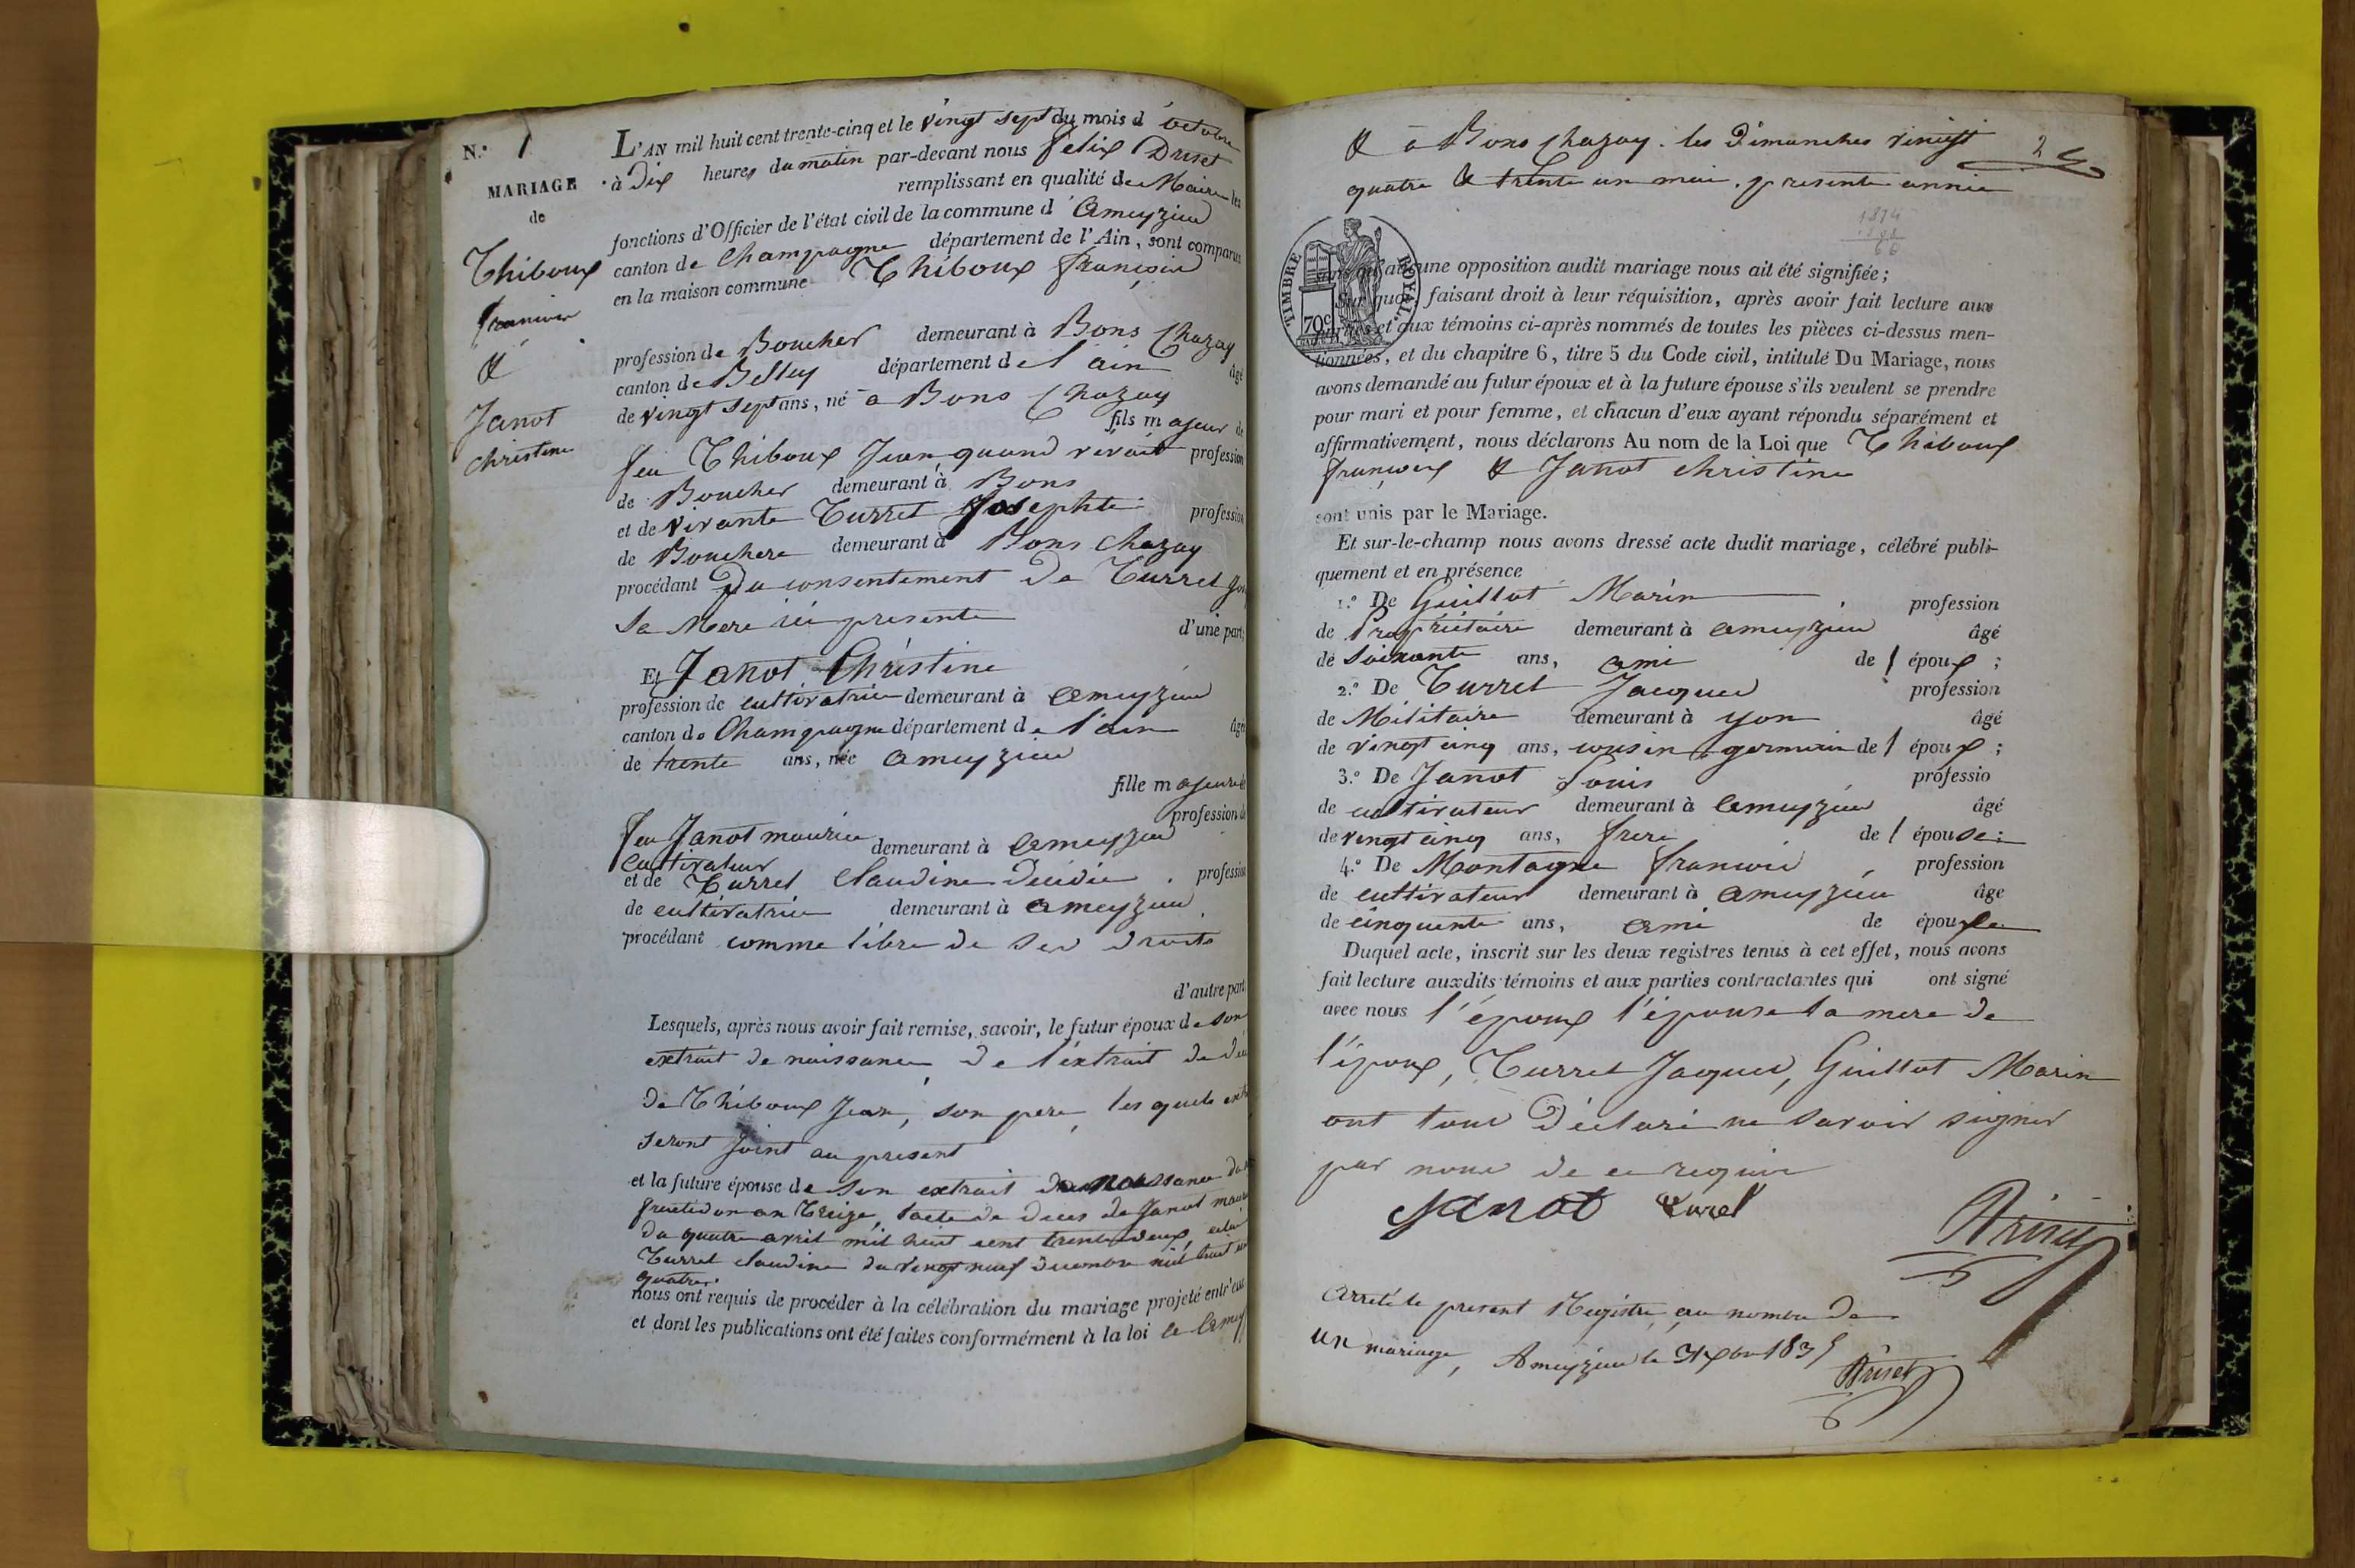 N.º 1
MARIAGE
de
Thiboux
françois
&
Janot
christine
L'AN mil huit cent trente-cinq et le vingt sept du mois d'octobre
à Dix heures du matin par-devant nous Felix Druet
remplissant en qualité de Maire les
fonctions d'Officier de l'état civil de la commune d'ameyzieu
canton de Champagne département de l'Ain, sont comparus
en la maison commune Thiboux françois
profession de Boucher demeurant à Bons Chazay
canton de Belley département de l'ain âgé
de vingt sept ans, né à Bons Chazay
fils majeur de
feu Thiboux Jean, quand vivait profession
de Boucher demeurant à Bons
et de vivante Turret Josephte profession
de Bouchere demeurant à Bons chazay
procédant Du consentement de Turret
Sa Mere ici presente d'une part;
Et Janot Christine
profession de cultivatrice demeurant à ameyzieu
canton de Champagne département de l'ain âgée
de trente ans, née ameyzieu
fille majeure de
profession de
feu Janot maurice demeurant à ameyzieu
Cultivateur
et de Turret Claudine décédée profession
de cultivatrice demeurant à ameyzieu
procédant comme libre de ses droits
d'autre part
Lesquels, après nous avoir fait remise, savoir, le futur époux de son
extrait de naissance, de l'extrait de
de Thiboux Jean, son pere, les quels
seront joint au present
et la future épouse de son extrait de naissance du
fructidor an treize, l'acte de deces de Janot
du quatre avril mil huit cent trente deux, celui
Turret claudine du vingt neuf decembre mil huit
quatre.
nous ont requis de procéder à la célébration du mariage projeté entr'eux
et dont les publications ont été faites conformément à la loi
& à Bons chazay. les Dimanches vingt
quatre & trente un mai. presente année
2
1814
TIMBRE ROYAL
70c
sans qu'aucune opposition audit mariage nous ait été signifiée;
Sur quoi faisant droit à leur réquisition, après avoir fait lecture aux
parties et aux témoins ci-après nommés de toutes les pièces ci-dessus men-
tionnées, et du chapitre 6, titre 5 du Code civil, intitulé Du Mariage, nous
avons demandé au futur époux et à la future épouse s'ils veulent se prendre
pour mari et pour femme, et chacun d'eux ayant répondu séparément et
affirmativement, nous déclarons Au nom de la Loi que Thiboux
françois & Janot christine
sont unis par le Mariage.
Et sur-le-champ nous avons dressé acte dudit mariage, célébré publi-
quement et en présence
1.º De Guillot Marin profession
de Propriétaire demeurant à ameyzieu âgé
de soixante ans, ami de l'époux;
2.º De Turret Jacques profession
de Militaire demeurant à yon âgé
de vingt cinq ans, cousin germain de l'époux;
3.º De Janot Louis professio
de cultivateur demeurant à ameyzieu âgé
de vingt cinq ans, frere de l'épouse;
4.º De Montagne francois profession
de cultivateur demeurant à ameyzieu âgé
de cinquante ans, ami de épouse
Duquel acte, inscrit sur les deux registres tenus à cet effet, nous avons
fait lecture auxdits témoins et aux parties contractantes qui ont signé
avec nous l'époux l'épouse la mere de
l'époux, Turret Jacques, Guillot Marin
ont tous déclaré ne savoir signer
par nous de ce requis
Janot
Arreté le present Registre au nombre de
un mariage, Ameyzieu le 31 xbre 1835